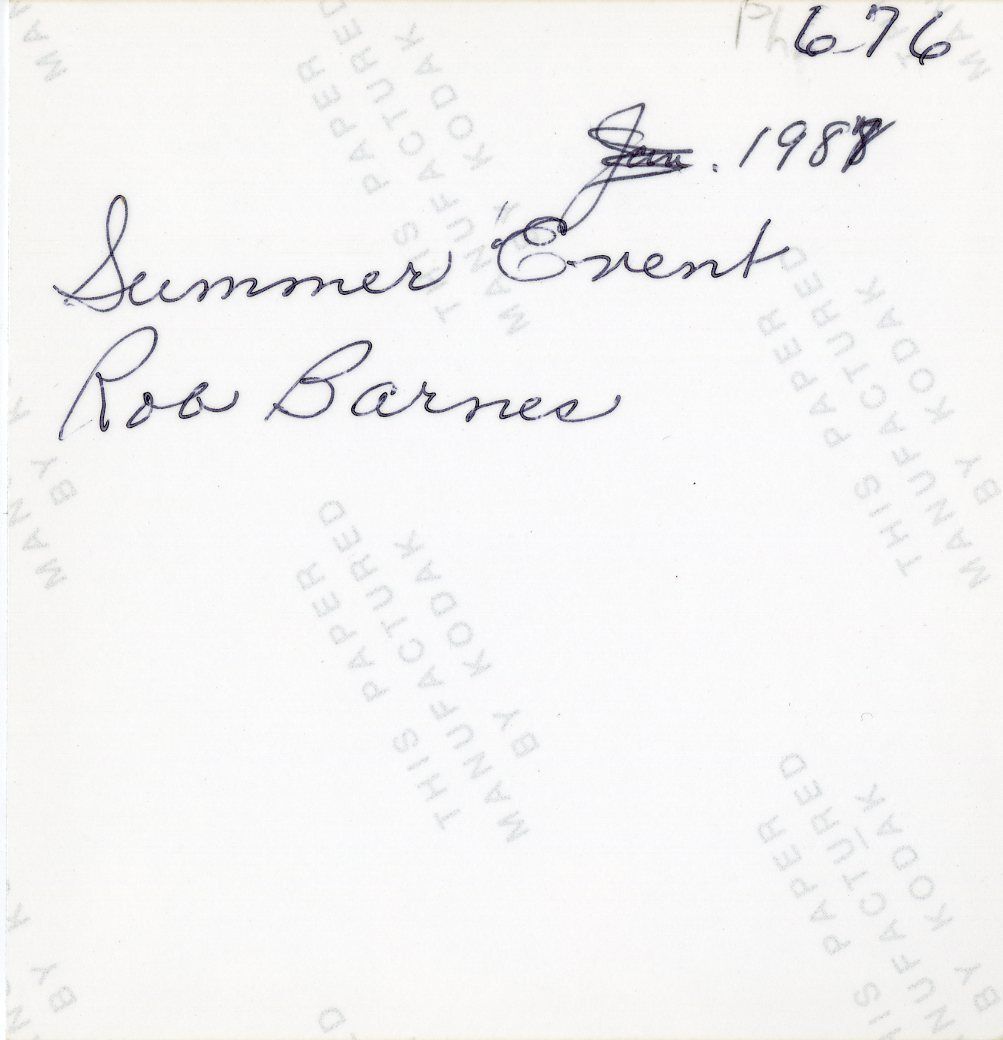 Ph 676
Jan. 1987
Summer Event
Rob Barnes
THIS PAPER
MANUFACTURED
BY KODAK
THIS PAPER
MANUFACTURED
BY KODAK
THIS PAPER
MANUFACTURED
BY KODAK
THIS PAPER
MANUFACTURED
BY KODAK